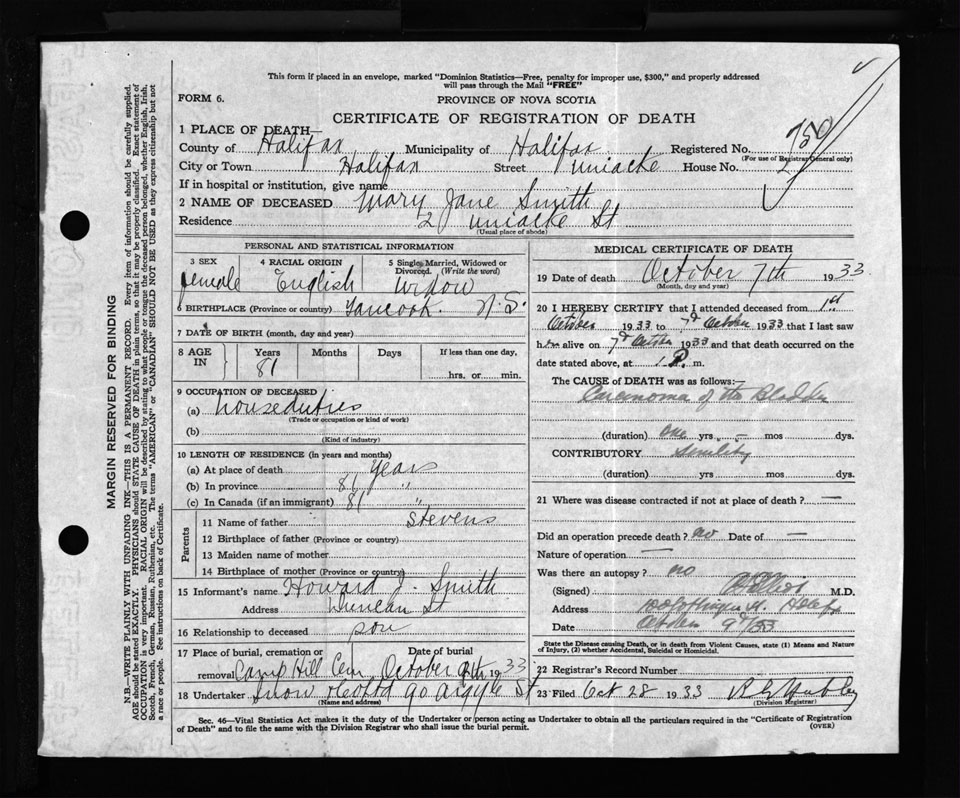 This form if placed in an envelope, marked "Dominion Statistics—Free, penalty for improper use, $300," and properly addressed
will pass through the Mail "FREE"
FORM 6.
PROVINCE OF NOVA SCOTIA
CERTIFICATE OF REGISTRATION OF DEATH
1 PLACE OF DEATH—
County of Halifax Municipality of Halifax Registered No. 750
(For use of Registrar General only)
City or Town Halifax Street Uniacke House No. 2
If in hospital or institution, give name
2 NAME OF DECEASED Mary Jane Smith
Residence 2 Uniacke St
(Usual place of abode)
PERSONAL AND STATISTICAL INFORMATION
3 SEX 4 RACIAL ORIGIN 5 Single, Married, Widowed or
Divorced. (Write the word)
female English Widow
6 BIRTHPLACE (Province or country) Tancook. N.S.
7 DATE OF BIRTH (month, day and year)
8 AGE IN Years Months Days If less than one day,
81 hrs. or min.
9 OCCUPATION OF DECEASED
(a) house duties
(Trade or occupation or kind of work)
(b)
(Kind of industry)
10 LENGTH OF RESIDENCE (in years and months)
(a) At place of death years
(b) In province 81 "
(c) In Canada (if an immigrant) 81 "
Parents
11 Name of father Stevens
12 Birthplace of father (Province or country)
13 Maiden name of mother
14 Birthplace of mother (Province or country)
15 Informant's name Howard J. Smith
Address Duncan St
16 Relationship to deceased son
17 Place of burial, cremation or Date of burial
removal Camp Hill Cem October 9th 1933
18 Undertaker Snow 90 Argyle St
(Name and address)
MEDICAL CERTIFICATE OF DEATH
19 Date of death October 7th 1933
(Month, day and year)
20 I HEREBY CERTIFY that I attended deceased from 1st
October 1933 to 7th October 1933 that I last saw
her alive on 7th October 1933 and that death occurred on the
date stated above, at 1 P. m.
The CAUSE of DEATH was as follows:—
Carcinoma of the Bladder
(duration) one yrs. — mos — dys.
CONTRIBUTORY Senility
(duration) yrs. mos. dys.
21 Where was disease contracted if not at place of death? —
Did an operation precede death? no Date of —
Nature of operation —
Was there an autopsy? no
(Signed) M.D.
Address
Date October 9th/33
State the Disease causing Death, or in death from Violent Causes, state (1) Means and Nature
of Injury, (2) whether Accidental, Suicidal or Homicidal.
22 Registrar's Record Number
23 Filed Oct 28 1933
(Division Registrar)
Sec. 46—Vital Statistics Act makes it the duty of the Undertaker or person acting as Undertaker to obtain all the particulars required in the "Certificate of Registration
of Death" and to file the same with the Division Registrar who shall issue the burial permit.
(OVER)
MARGIN RESERVED FOR BINDING
N.B.—WRITE PLAINLY WITH UNFADING INK—THIS IS A PERMANENT RECORD. Every item of information should be carefully supplied.
AGE should be stated EXACTLY. PHYSICIANS should STATE CAUSE OF DEATH in plain terms, so that it may be properly classified. Exact statement of
OCCUPATION is very important. RACIAL ORIGIN will be described by stating to what people or tongue the deceased person belonged, whether English, Irish,
Scotch, French, German, Russian, Ruthenian, etc. The terms "AMERICAN" or "CANADIAN" SHOULD NOT BE USED as they express citizenship but not
a race or people. See instructions on back of Certificate.